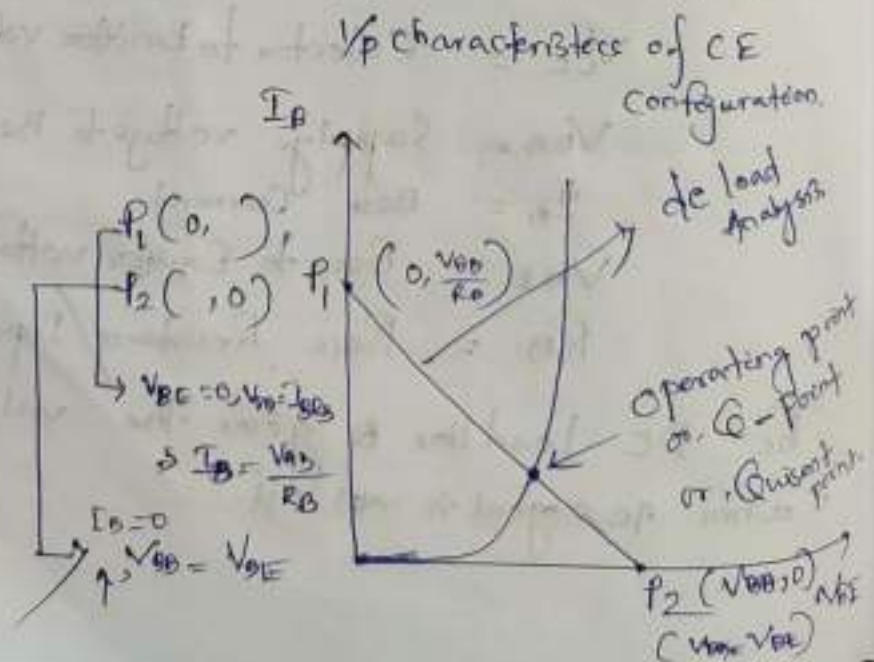 I/p characteristics of CE
configuration.
I_B
dc load
Analysis
P₁(0, );
P₂( ,0)
P₁ (0, V_BB/R_B)
V_BE=0, V_BB=I_B R_B
⇒ I_B = V_BB/R_B
I_B=0
V_BB = V_BE
Operating point
or, Q-point
or, Quisent
point.
P₂ (V_BB,0) V_BE
(V_BB=V_BE)